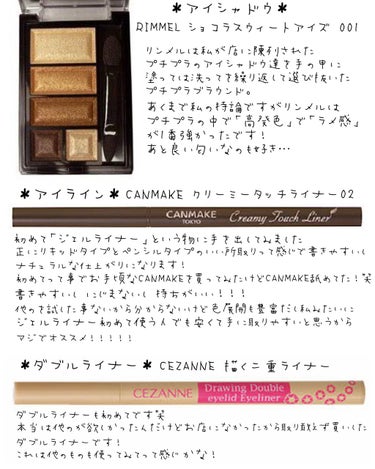 ＊アイシャドウ＊
RIMMEL ショコラスウィートアイズ 001
リンメルは私が店に陳列された
プチプラのアイシャドウ達を手の甲に
塗っては洗ってを繰り返して選び抜いた
プチプラブラウンド。
あくまで私の持論ですがリンメルは
プチプラの中で「高発色」で「ラメ感」
が1番強かったです！
あと良い匂いなのも好き…
＊アイライン＊CANMAKE クリーミータッチライナー02
CANMAKE
TOKYO
Creamy Touch Liner
初めて「ジェルライナー」という物に手を出してみました
正にリキッドタイプとペンシルタイプのいい所取りって感じで書きやすいし
ナチュラルな仕上がりになります！
初めてって事でお手頃なCANMAKEを買ってみたけどCANMAKE舐めてた！笑
書きやすいし にじまないし 持ちがいい！！！
他のを試した事ないから分からないけど色展開も豊富だし私みたいに
ジェルライナー初めて使う人でも安くて手に取りやすいと思うから
マジでオススメ！！！！！
＊ダブルライナー＊ CEZANNE 描く二重ライナー
CEZANNE
Drawing Double
eyelid Eyeliner
ダブルライナーも初めてです笑
本当は他のが欲しかったんだけどお店になかったから取り敢えず買いした
ダブルライナーです！
これは他のものも使ってみてって感じかな！